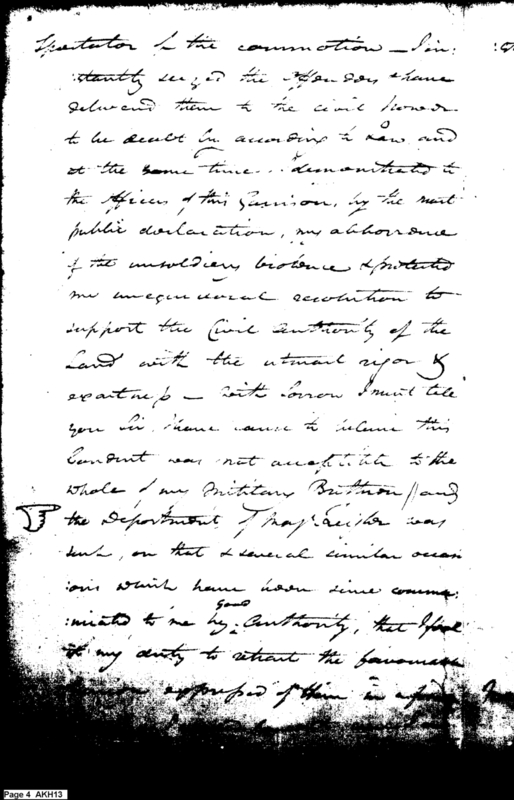 Spectator to the commotion — I in:
:stantly seized the offenders & have
delivered them to the civil Power
to be dealt by according to Law and
at the same time demonstrated to
the Officers of this Garrison, by the most
public declaration, my abhorrence
of the unsoldiery violence &
my unequivocal resolution to
support the Civil Authority of the
Land with the utmost rigor &
exactness — with Sorrow I must tell
you Sir I have cause to believe this
Conduct was not acceptable to the
whole of my Military Brethren // and
the Department of Majr was
such, on that & several similar occas
:ions which have been since commu:
:nicated to me by good Authority, that I feel
it my duty to retract the favourable
expressed of Him in a
Page 4 AKH13